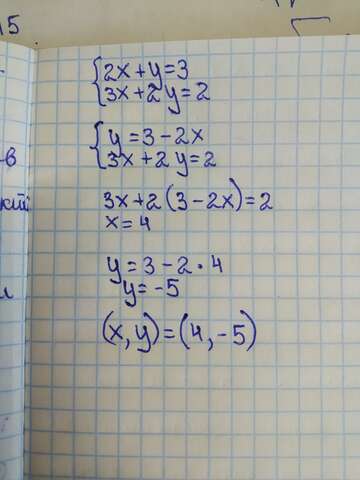 15
{2x+y=3
3x+2y=2
{y=3-2x
3x+2y=2
3x+2(3-2x)=2
x=4
y=3-2·4
y=-5
(x,y)=(4,-5)